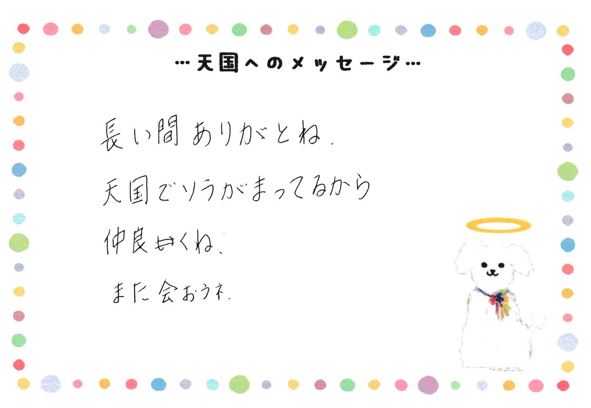 …天国へのメッセージ…
長い間ありがとね.
天国でソラがまってるから
仲良くね、
また会おうネ.